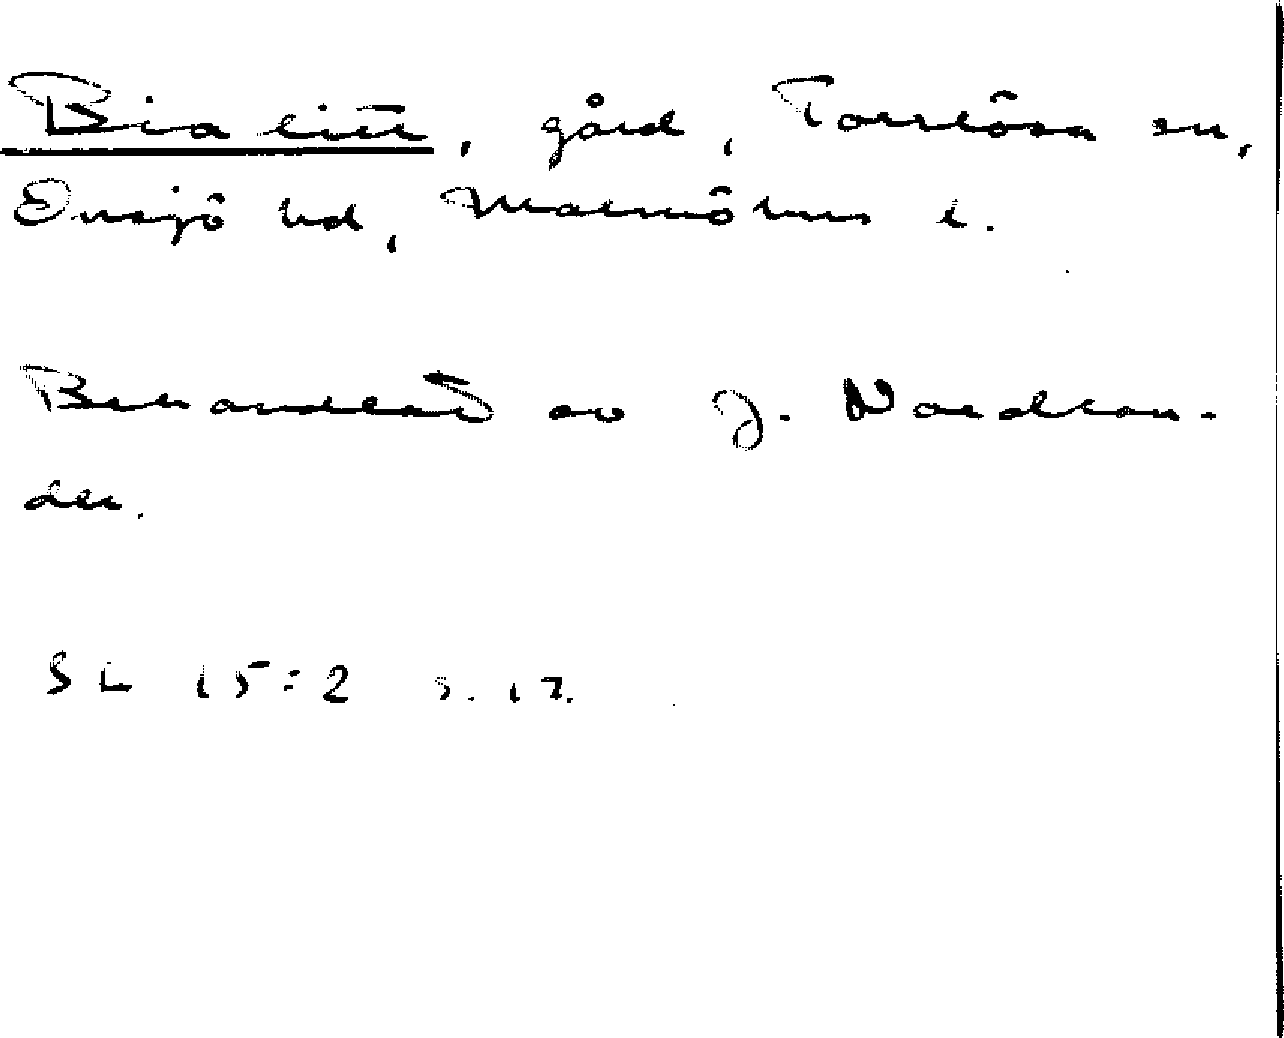 Bialitt, gård, Torrlösa sn,
Onsjö hd, Malmöhus l.
Behandlat av J. Nordlan-
der.
SL 15:2 s. 17.